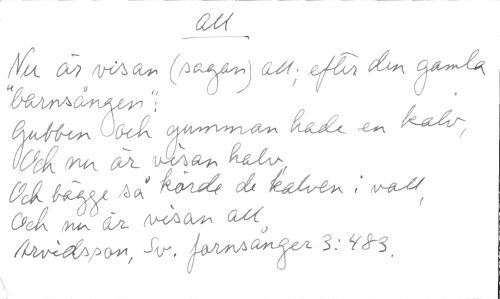 all
Nu är visan (sagan) all; efter den gamla
"barnsången":
Gubben och gumman hade en kalv,
Och nu är visan halv,
Och bägge så körde de kalven i vall,
Och nu är visan all
Arvidsson, Sv. fornsånger 3:483.